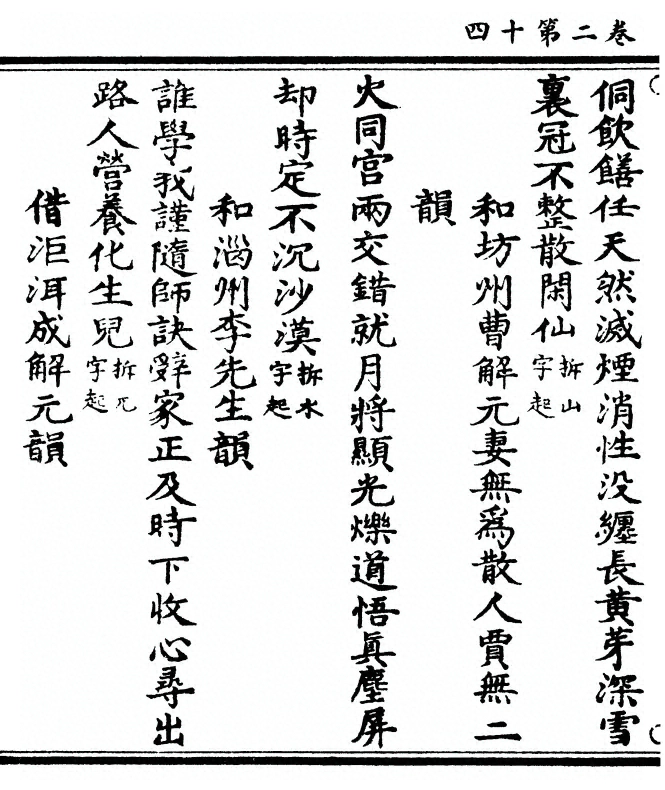 四十第二卷
侗飲饍任天然滅煙消性没纏長黄芽深雪
裏冠不整散閑仙拆山字起
和坊州曹解元妻無爲散人賈無二
韻
火同宫兩交錯就月將顯光爍道悟眞塵屏
却時定不沉沙漠拆水字起
和淄州李先生韻
誰學我謹隨師訣辤家正及時下收心尋出
路人營養化生兒拆儿字起
借洰洱成解元韻